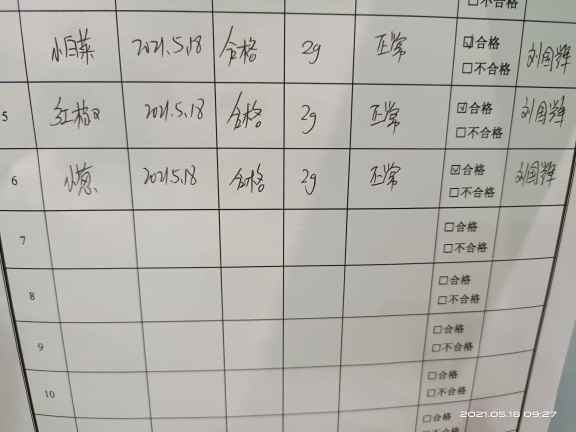 □不合格
小白菜 2021.5.18 合格 2g 正常 ☑合格 □不合格 刘国辉
5 2021.5.18 合格 2g 正常 ☑合格 □不合格 刘国辉
6 小葱 2021.5.18 合格 2g 正常 ☑合格 □不合格 刘国辉
7 □合格 □不合格
8 □合格 □不合格
9 □合格 □不合格
10 □合格 □不合格
□合格
□不合格
2021.05.18 09:27